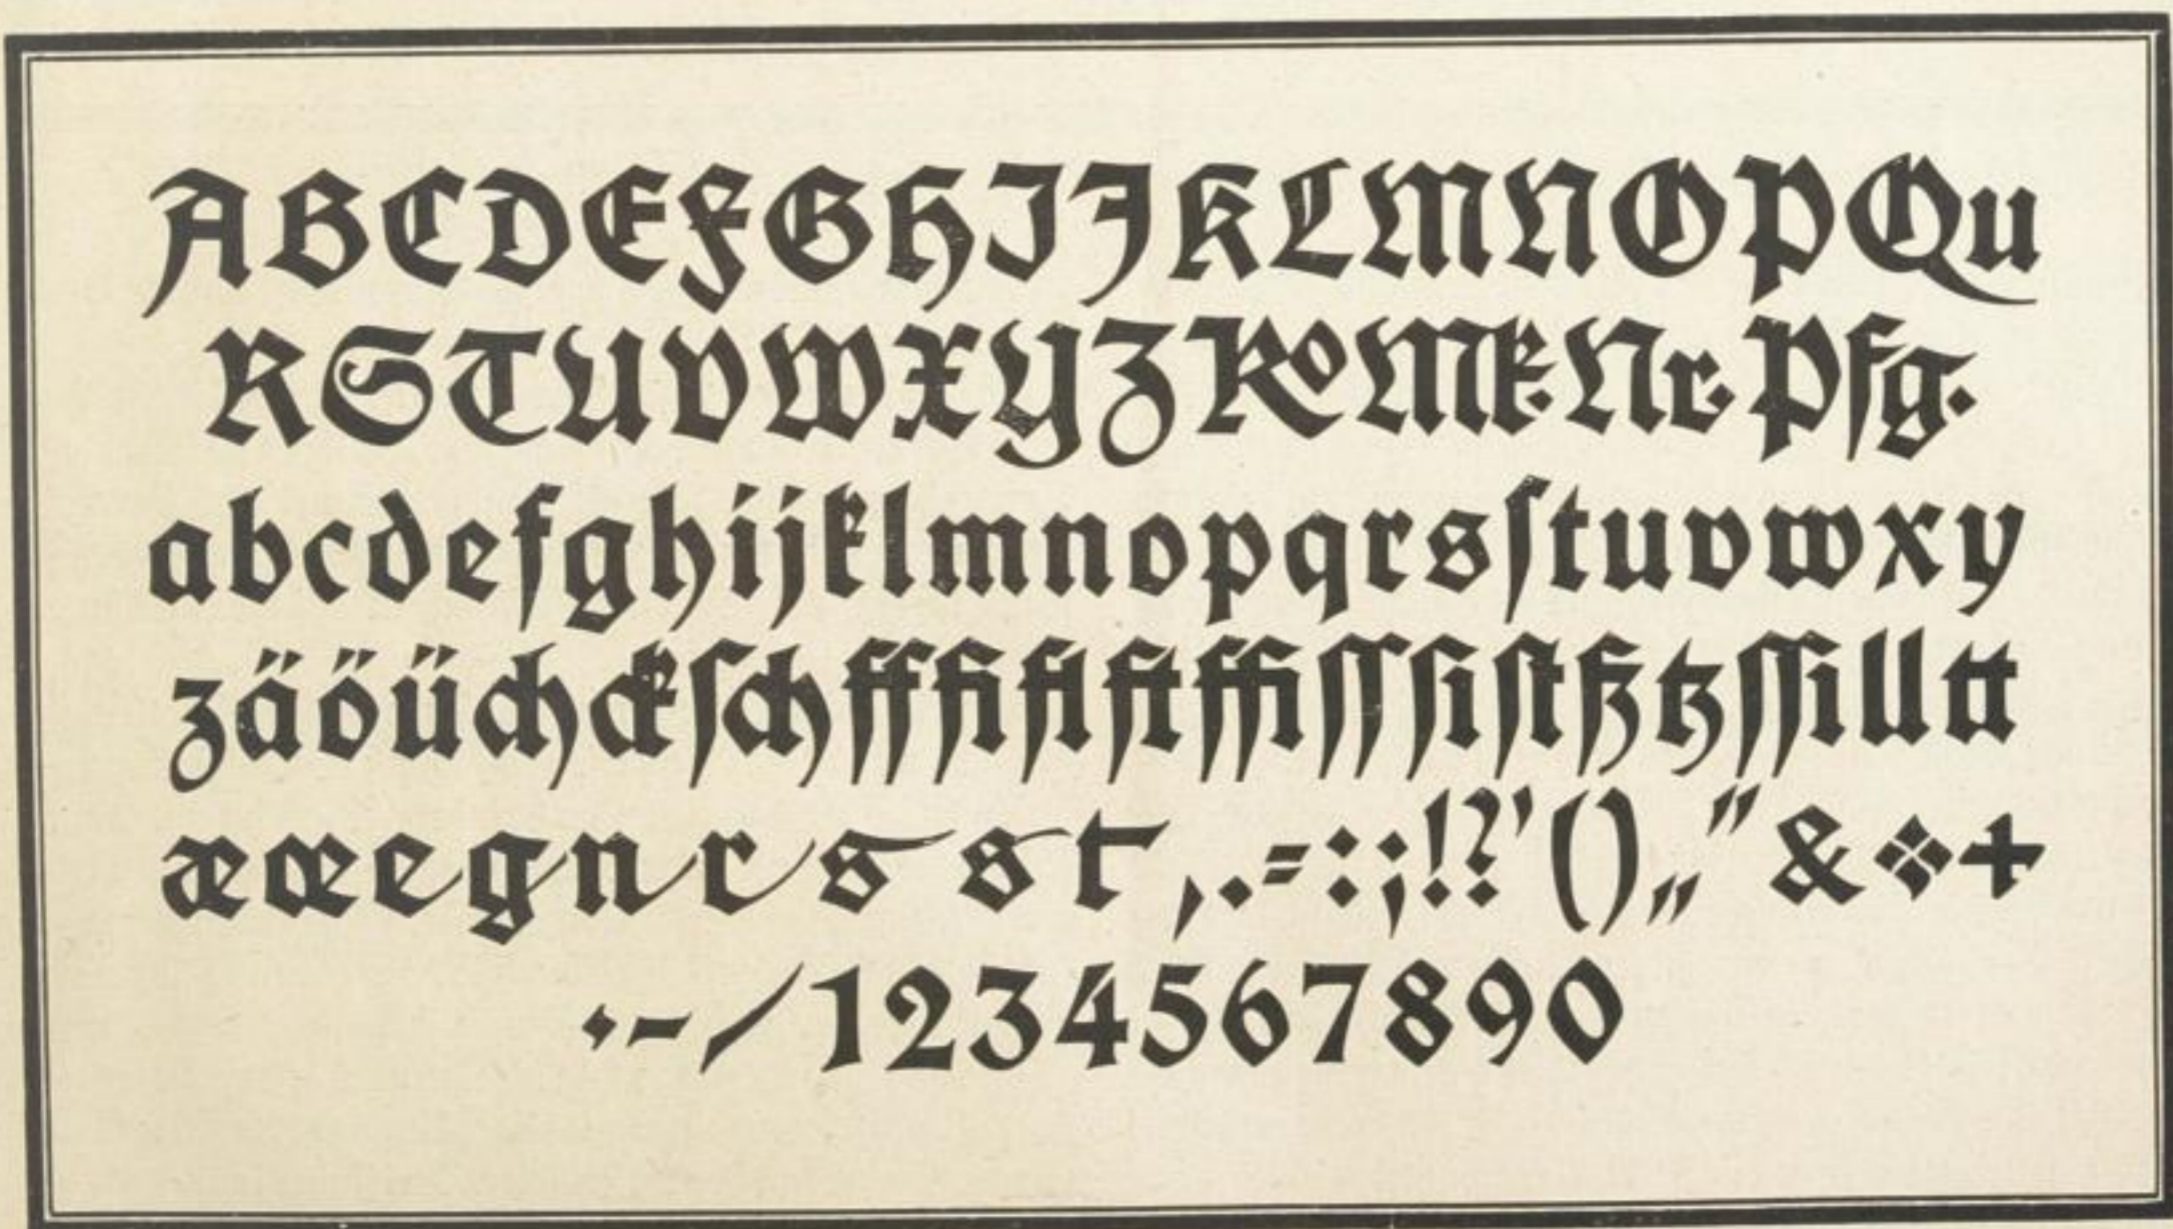 ABCDEFGHIJKLMNOPQu
RSTUVWXYZKoMk.Nr.Pfg.
abcdefghijklmnopqrsſtuvwxy
zäöüchckſchfffiflftffiſſſiſtßtzſſilltt
æœegnrsst,.=:;!?’()„“&❖+
·-/1234567890